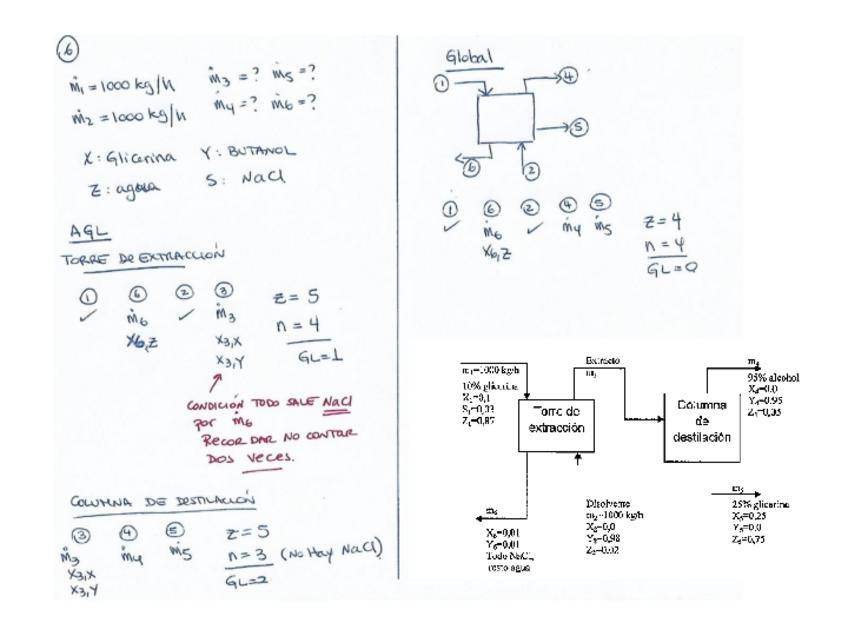 6
ṁ1 = 1000 kg/h ṁ3 = ? ṁ5 = ?
ṁ2 = 1000 kg/h ṁ4 = ? ṁ6 = ?
X: Glicerina Y: BUTANOL
Z: agua S: NaCl
AGL
TORRE DE EXTRACCIÓN
1 6 2 3 z = 5
✓ ṁ6 ✓ ṁ3 n = 4
X6,Z X3,X
X3,Y GL=1
CONDICIÓN TODO SALE NaCl
por ṁ6
RECORDAR NO CONTAR
DOS VECES.
COLUMNA DE DESTILACIÓN
3 4 5 z = 5
ṁ3 ṁ4 ṁ5 n = 3 (No Hay NaCl)
X3,X
X3,Y GL=2
Global
1 4
5
6 2
1 6 2 4 5 z = 4
✓ ṁ6 ✓ ṁ4 ṁ5 n = 4
X6,Z GL=0
m1=1000 kg/h
10% glicerina
X1=0,1
S1=0,03
Z1=0,87
Torre de
extracción
Extracto
m3
Columna
de
destilación
m4
95% alcohol
X4=0.0
Y4=0.95
Z4=0,05
m6
X6=0,01
Y6=0,01
Todo NaCl,
resto agua
Disolvente
m2=1000 kg/h
X2=0,0
Y2=0,98
Z2=0.02
m5
25% glicerina
X5=0,25
Y5=0,0
Z5=0,75